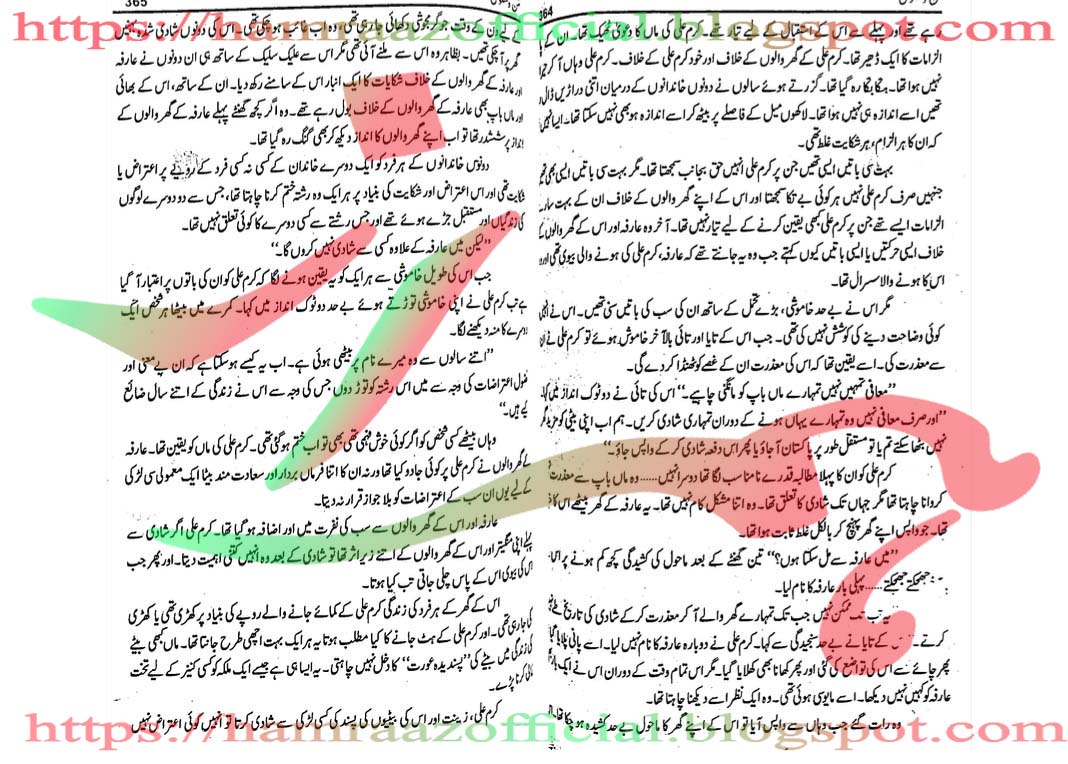 https://hamraazofficial.blogspot.com
364
رہے تھے اور پہلے سے اس کے استقبال کے لیے تیار تھے۔ کرم علی کی ماں کا دعویٰ ٹھیک تھا۔ ان کے
الزامات کا ایک ڈھیر تھا۔ کرم علی کے گھر والوں کے خلاف اور خود کرم علی کے خلاف۔ کرم علی وہاں آ کر
نہیں ہوا تھا۔ ہکا بکا رہ گیا تھا۔ گزرتے ہوئے سالوں نے دونوں خاندانوں کے درمیان اتنی دراڑیں ڈال
تھیں اسے اندازہ ہی نہیں ہوا تھا۔ لاکھوں میل کے فاصلے پر بیٹھ کر اسے اندازہ ہو بھی نہیں سکتا تھا۔ ایسا نہیں
کہ ان کا ہر الزام، ہر شکایت غلط تھی۔
بہت سی باتیں ایسی تھیں جن پر کرم علی انہیں حق بجانب سمجھتا تھا۔ مگر بہت سی باتیں ایسی بھی تھیں
جنہیں صرف کرم علی نہیں ہر کوئی بے تکا سمجھتا اور اس کے اپنے گھر والوں کے خلاف ان کے بہت سارے
الزامات ایسے تھے جن پر کرم علی کبھی یقین کرنے کے لیے تیار نہیں تھا۔ آخر وہ عارفہ اور اس کے گھر والوں کے
خلاف ایسی حرکتیں یا ایسی باتیں کیوں کہتے جب وہ یہ جانتے تھے کہ عارفہ، کرم علی کی ہونے والی بیوی تھی اور وہ
اس کا ہونے والا سسرال تھا۔
مگر اس نے بے حد خاموشی، بڑے تحمل کے ساتھ ان کی سب کی باتیں سنی تھیں۔ اس نے انہیں
کوئی وضاحت دینے کی کوشش نہیں کی تھی۔ جب اس کے تایا اور تائی بالآخر خاموش ہوئے تو کرم علی نے ان
سے معذرت کی۔ اسے یقین تھا کہ اس کی معذرت ان کے غصے کو ٹھنڈا کر دے گی۔
"معافی تمہیں نہیں تمہارے ماں باپ کو مانگنی چاہیے۔" اس کی تائی نے دو ٹوک انداز میں کہا۔
"اور صرف معافی نہیں وہ تمہارے یہاں ہونے کے دوران تمہاری شادی کریں۔ ہم اب اپنی بیٹی کو مزید گھر
نہیں بٹھا سکتے تم یا تو مستقل طور پر پاکستان آ جاؤ یا پھر اس دفعہ شادی کر کے واپس جاؤ۔"
کرم علی کو ان کا پہلا مطالبہ قدرے نامناسب لگا تھا دوسرا نہیں...... وہ ماں باپ سے معذرت
کروانا چاہتا تھا مگر جہاں تک شادی کا تعلق تھا۔ وہ اتنا مشکل کام نہیں تھا۔ یہ عارفہ کے گھر بیٹھے اس کا
تھا۔ جو واپس اپنے گھر پہنچ کر بالکل غلط ثابت ہوا تھا۔
"میں عارفہ سے مل سکتا ہوں؟" تین گھنٹے کے بعد ماحول کی کشیدگی کچھ کم ہونے پر اس
جھجکتے جھجکتے...... پہلی بار عارفہ کا نام لیا۔
یہ تب تک ممکن نہیں جب تک تمہارے گھر والے آ کر معذرت کر کے شادی کی تاریخ طے
کرتے۔ کے تایا نے بے حد سنجیدگی سے کہا۔ کرم علی نے دوبارہ عارفہ کا نام نہیں لیا۔ اسے پانی پلایا گیا
پھر چائے سے اس کی تواضع کی گئی اور پھر کھانا بھی کھلایا گیا۔ مگر اس تمام وقت کے دوران اس نے ایک بار
عارفہ کو کہیں نہیں دیکھا۔ اسے مایوسی ہوئی تھی۔ وہ ایک نظر اسے دیکھنا چاہتا تھا۔
وہ رات گئے جب وہاں سے واپس آیا تو اس کے اپنے گھر کا ماحول بے حد کشیدہ ہو چکا تھا۔
365
کے لیے ان کے وقت جو گرمجوشی دکھائی جا رہی تھی وہ اب غائب ہو چکی تھی۔ اس کی دونوں شادی شدہ بہنیں
گھر پر آ چکی تھیں۔ بظاہر وہ اس سے ملنے آئی تھی مگر اس سے علیک سلیک کے ساتھ ہی ان دونوں نے عارفہ
اور عارفہ کے گھر والوں کے خلاف شکایات کا ایک انبار اس کے سامنے رکھ دیا۔ ان کے ساتھ، اس کے بھائی
اور ماں باپ بھی عارفہ کے گھر والوں کے خلاف بول رہے تھے۔ وہ اگر کچھ گھنٹے پہلے عارفہ کے گھر والوں کے
انداز پر ششدر تھا تو اب اپنے گھر والوں کا انداز دیکھ کر بھی گنگ رہ گیا تھا۔
دونوں خاندانوں کے ہر فرد کو ایک دوسرے خاندان کے کسی نہ کسی فرد کے رویئے پر اعتراض یا
شکایت تھی اور اس اعتراض اور شکایت کی بنیاد پر ہر ایک وہ رشتہ ختم کرنا چاہتا تھا، جس سے دو دوسرے لوگوں
کی زندگیاں اور مستقبل جڑے ہوئے تھے اور جس رشتے سے کسی دوسرے کا کوئی تعلق نہیں تھا۔
"لیکن میں عارفہ کے علاوہ کسی سے شادی نہیں کروں گا۔"
جب اس کی طویل خاموشی سے ہر ایک کو یہ یقین ہونے لگا کہ کرم علی کو ان کی باتوں پر اعتبار آ گیا
ہے تب کرم علی نے اپنی خاموشی توڑتے ہوئے بے حد دو ٹوک انداز میں کہا۔ کمرے میں بیٹھا ہر شخص ایک
دوسرے کا منہ دیکھنے لگا۔
"اتنے سالوں سے وہ میرے نام پر بیٹھی ہوئی ہے۔ اب یہ کیسے ہو سکتا ہے کہ ان بے معنی اور
فضول اعتراضات کی وجہ سے میں اس رشتہ کو توڑ دوں جس کی وجہ سے اس نے زندگی کے اتنے سال ضائع
کیے ہیں۔"
وہاں بیٹھے کسی شخص کو اگر کوئی خوش فہمی تھی بھی تو اب ختم ہو گئی تھی۔ کرم علی کی ماں کو یقین تھا۔ عارفہ
کے گھر والوں نے کرم علی پر کوئی جادو کیا تھا ورنہ ان کا اتنا فرماں بردار اور سعادت مند بیٹا ایک معمولی سی لڑکی
کے لیے یوں ان سب کے اعتراضات کو بلا جواز قرار نہ دیتا۔
عارفہ اور اس کے گھر والوں سے سب کی نفرت میں اور اضافہ ہو گیا تھا۔ کرم علی اگر شادی سے
پہلے اپنی منگیتر اور اس کے گھر والوں کے اتنے زیر اثر تھا تو شادی کے بعد وہ انہیں کتنی اہمیت دیتا۔ اور پھر جب
اس کی بیوی اس کے پاس چلی جاتی تب کیا ہوتا۔
اس کے گھر کے ہر فرد کی زندگی کرم علی کے کمائے جانے والے روپے کی بنیاد پر کھڑی تھی یا کھڑی
کی جا رہی تھی۔ اور کرم علی کے ہٹ جانے کا کیا مطلب ہوتا یہ ہر ایک بہت اچھی طرح جانتا تھا۔ ماں کبھی بیٹے
کی زندگی میں بیٹے کی "پسندیدہ عورت" کا دخل نہیں چاہتی۔ یہ ایسا ہی ہے جیسے ایک ملکہ کو کسی کنیز کے لیے تخت
خالی کرنا پڑے۔
کرم علی، زینت اور اس کی بیٹیوں کی پسند کی کسی لڑکی سے شادی کرتا تو انہیں کوئی اعتراض نہیں
https://hamraazofficial.blogspot.com